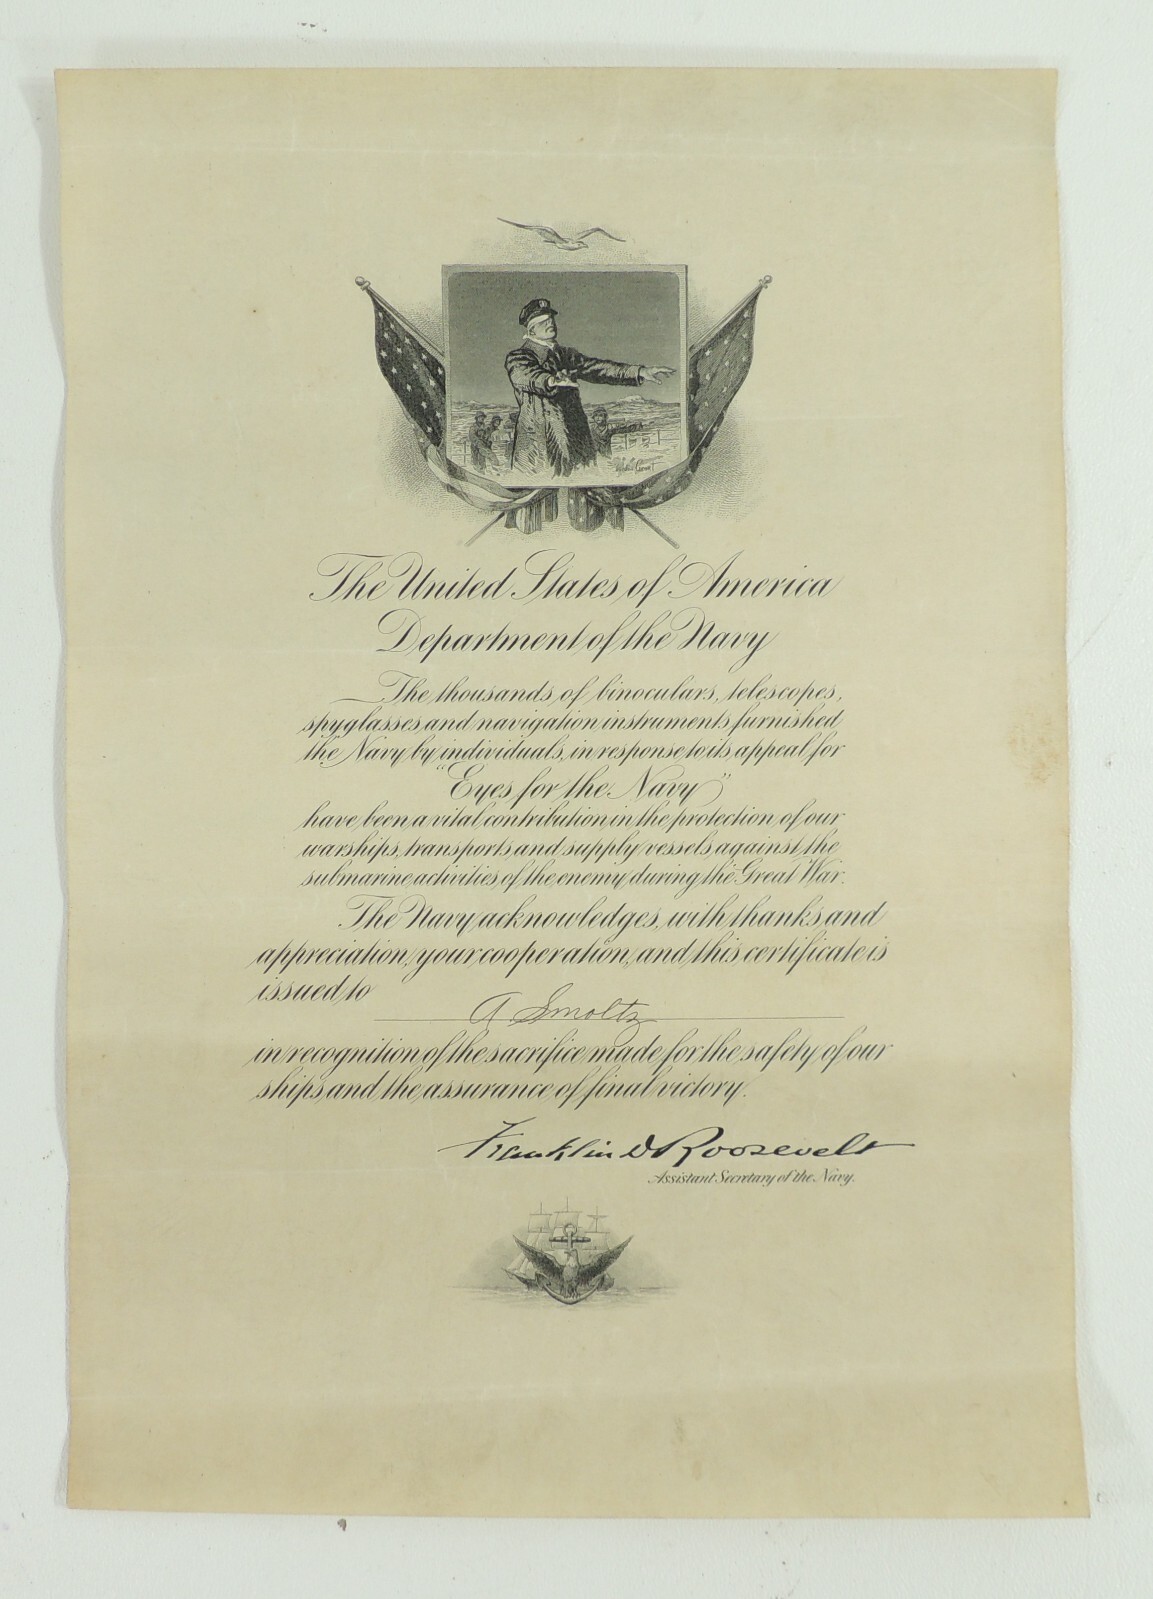 The United States of America
Department of the Navy
The thousands of binoculars, telescopes,
spyglasses, and navigation instruments, furnished
the Navy by individuals, in response to its appeal for
"Eyes for the Navy"
have been a vital contribution in the protection of our
warships, transports and supply vessels against the
submarine activities of the enemy during the Great War.
The Navy acknowledges, with thanks and
appreciation, your cooperation, and this certificate is
issued to
A Smoltz
in recognition of the sacrifice made for the safety of our
ships and the assurance of final victory.
Franklin D Roosevelt
Assistant Secretary of the Navy.